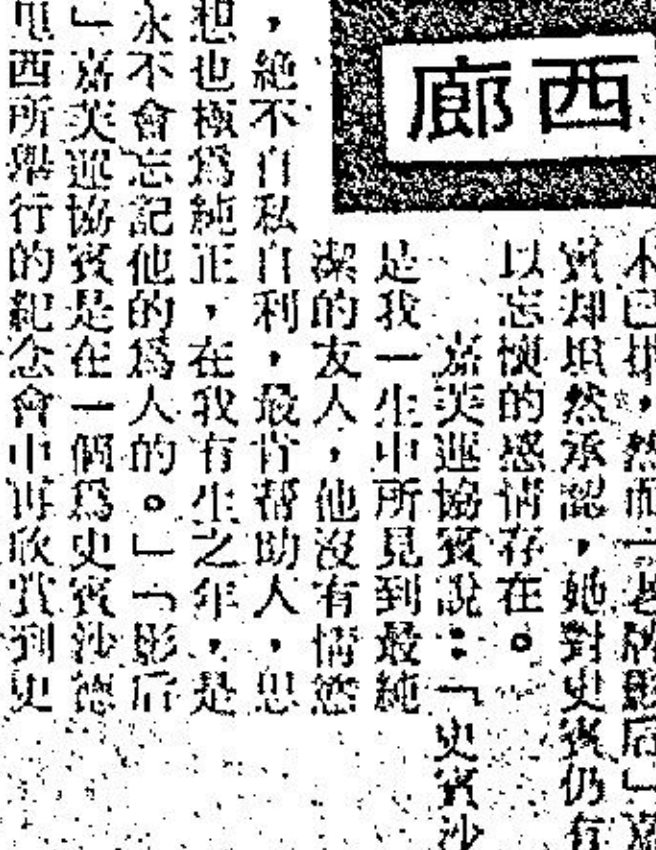 廊西
不已，然而「老牌影后」嘉
賓却坦然承認，她對史賓仍有
以忘懷的感情存在。
嘉芙蓮協賓說：「史賓沙
是我一生中所見到最純
潔的友人，他沒有情慾
，絕不自私自利，最肯幫助人，思
想也極為純正，在我有生之年，是
永不會忘記他的為人的。」「影后
」嘉芙蓮協賓是在一個為史賓沙德
西所舉行的紀念會中再欣賞到史